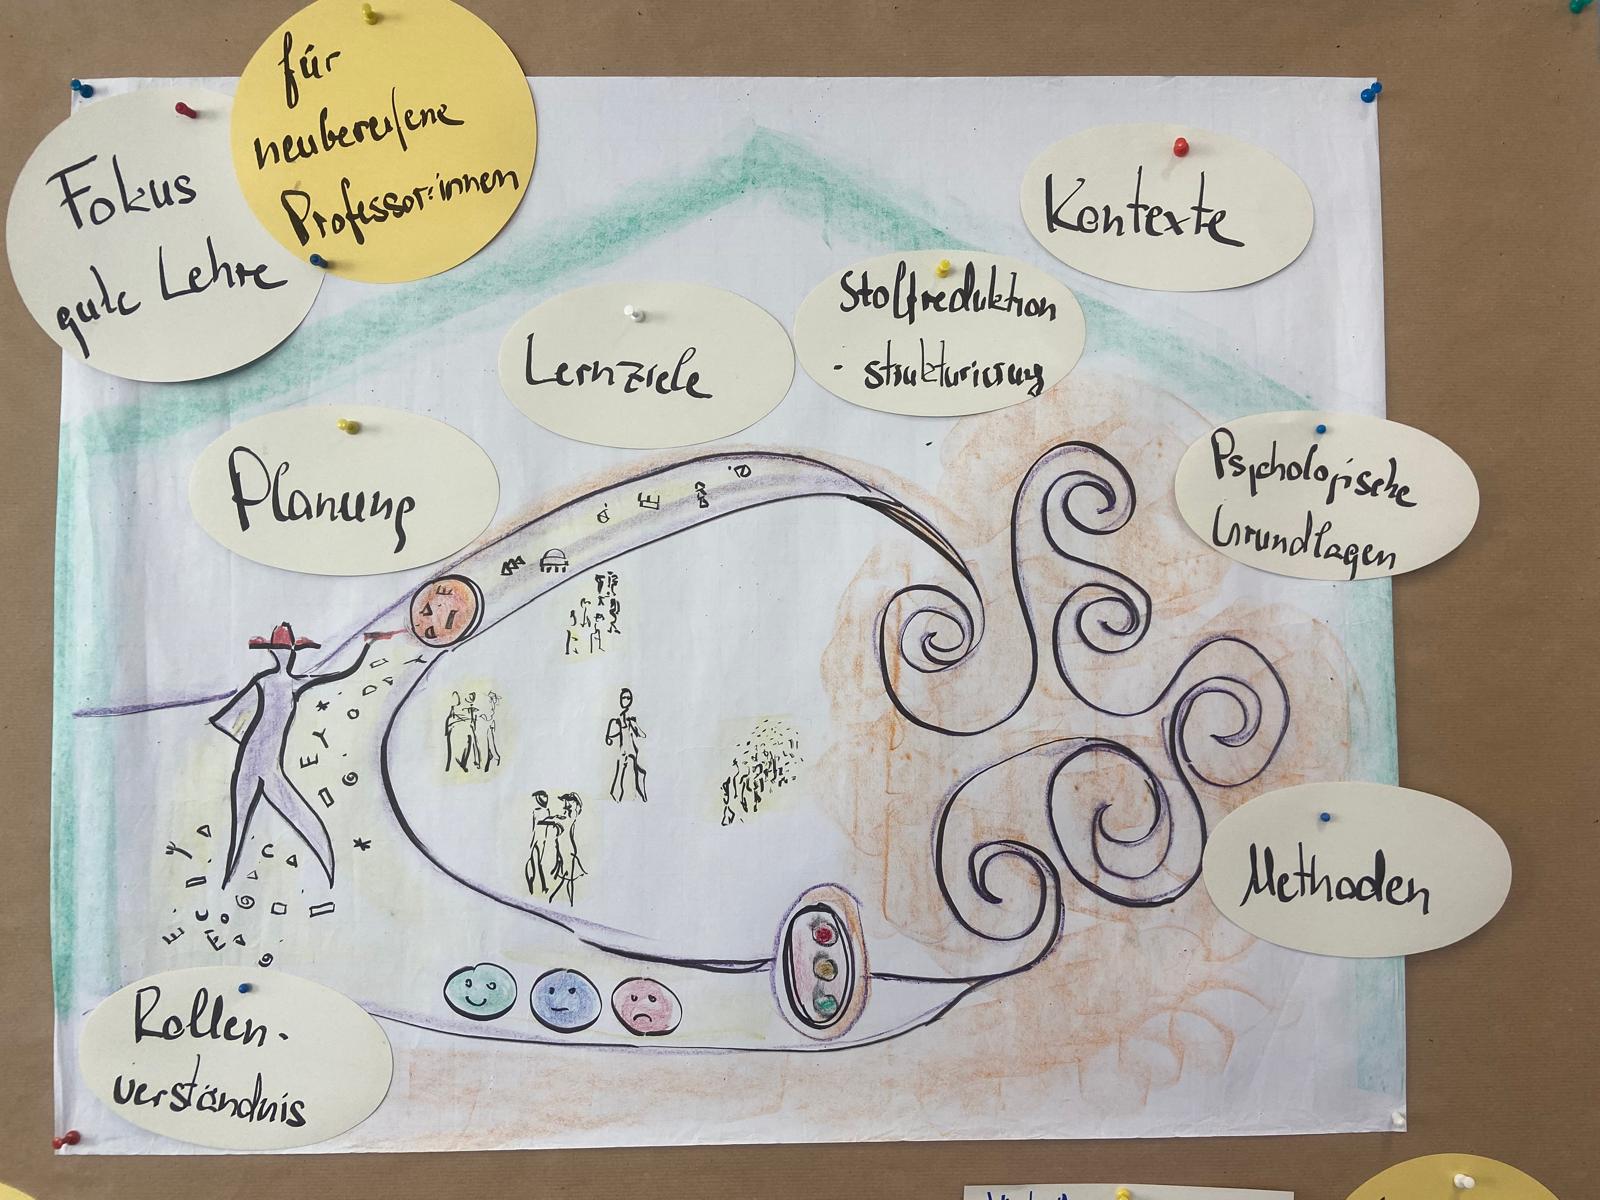 für
neubereifene
Professor:innen
Fokus
gute Lehre
Kontexte
Stoffreduktion
- strukturierung
Lernziele
Planung
Psychologische
Grundlagen
Methoden
Rollen-
verständnis